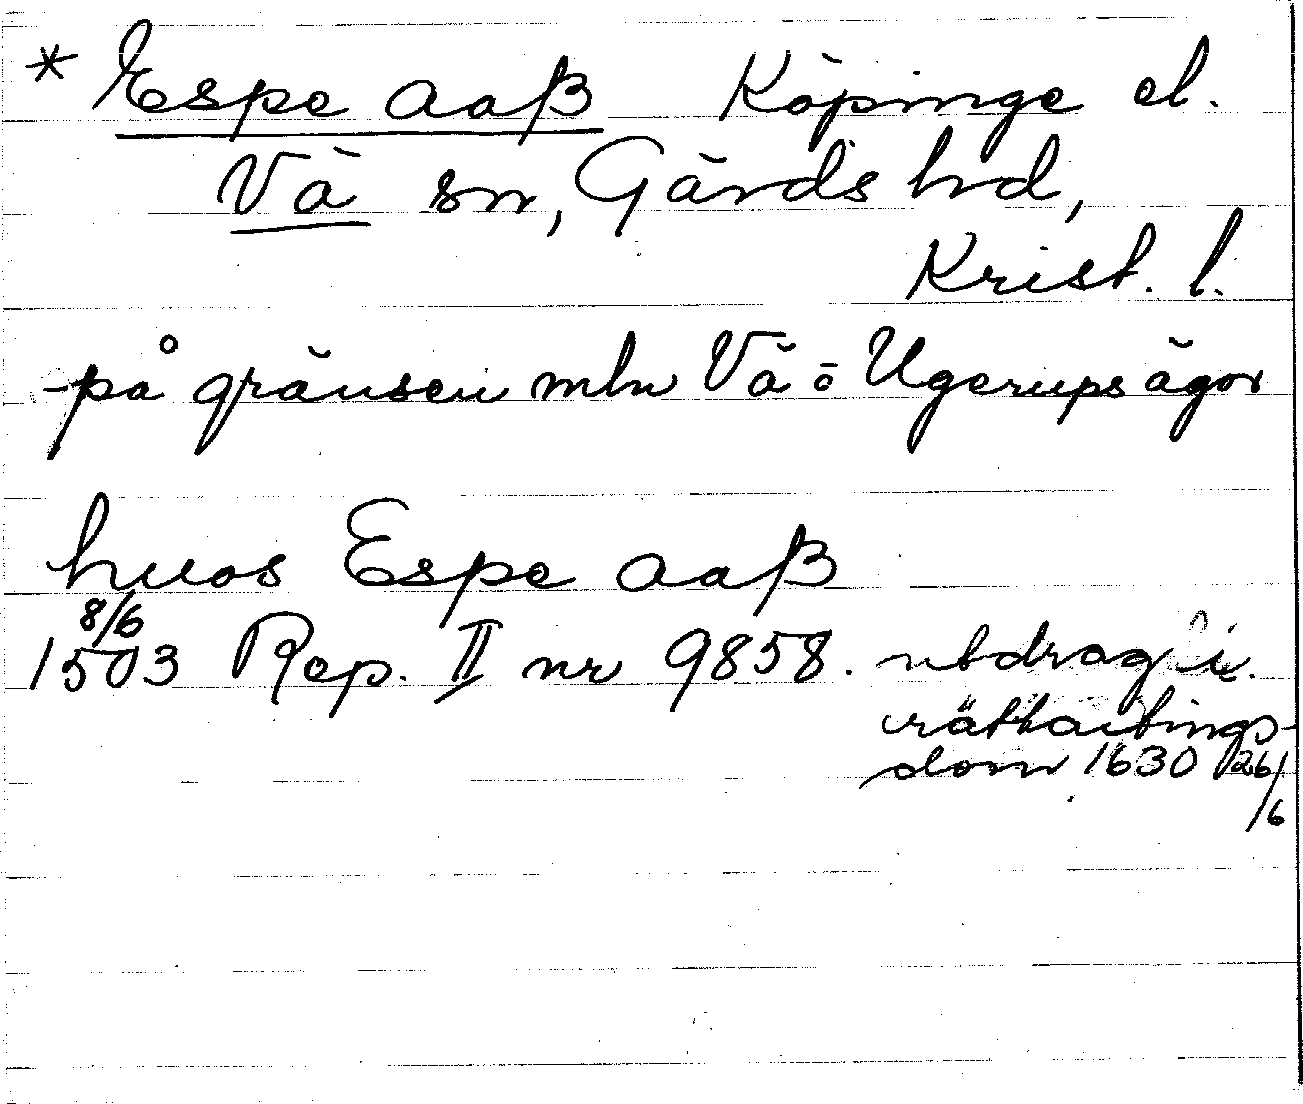 * Espe aaß Köpinge el.
Vä sn, Gärds hd,
Krist. l.
på gränsen mln Vä o Ugerups ägor
huos Espe aaß
8/6
1503 Rep. II nr 9858. utdrag i
rättartings-
dom 1630 26/6